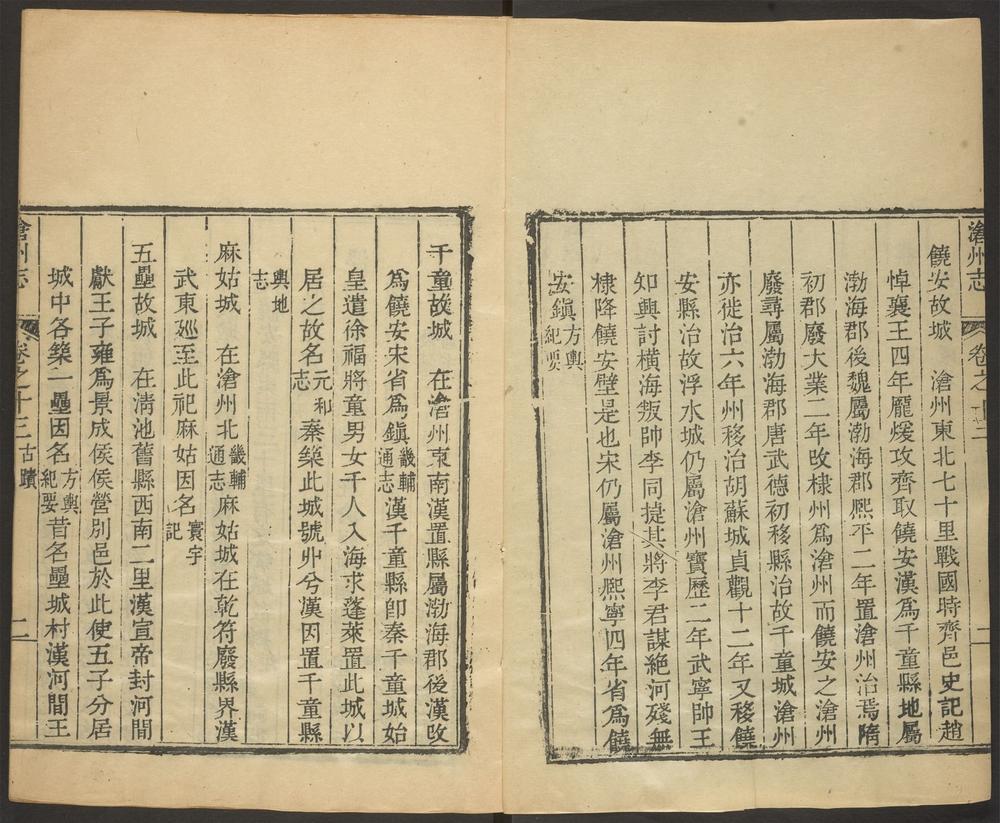 滄州志 卷之十三 一
饒安故城 滄州東北七十里戰國時齊邑史記趙
悼襄王四年龐煖攻齊取饒安漢爲千童縣地屬
渤海郡後魏屬渤海郡熙平二年置滄州治焉隋
初郡廢大業二年改棣州爲滄州而饒安之滄州
廢尋屬渤海郡唐武德初移縣治故千童城滄州
亦徙治六年州移治胡蘇城貞觀十二年又移饒
安縣治故浮水城仍屬滄州寶歷二年武寧帥王
知興討橫海叛帥李同捷其將李君謀絕河殘無
棣降饒安壁是也宋仍屬滄州熙寧四年省爲饒
安鎭方輿紀要
千童故城 在滄州東南漢置縣屬渤海郡後漢改
爲饒安宋省爲鎭畿輔通志漢千童縣卽秦千童城始
皇遣徐福將童男女千人入海求蓬萊置此城以
居之故名元和志秦築此城號丱兮漢因置千童縣
輿地志
麻姑城 在滄州北畿輔通志麻姑城在乾符廢縣界漢
武東廵至此祀麻姑因名寰宇記
五壘故城 在淸池舊縣西南二里漢宣帝封河間
獻王子雍爲景成侯侯營別邑於此使五子分居
城中各築一壘因名方輿紀要昔名壘城村漢河間王
滄州志 卷之十三 古蹟 二